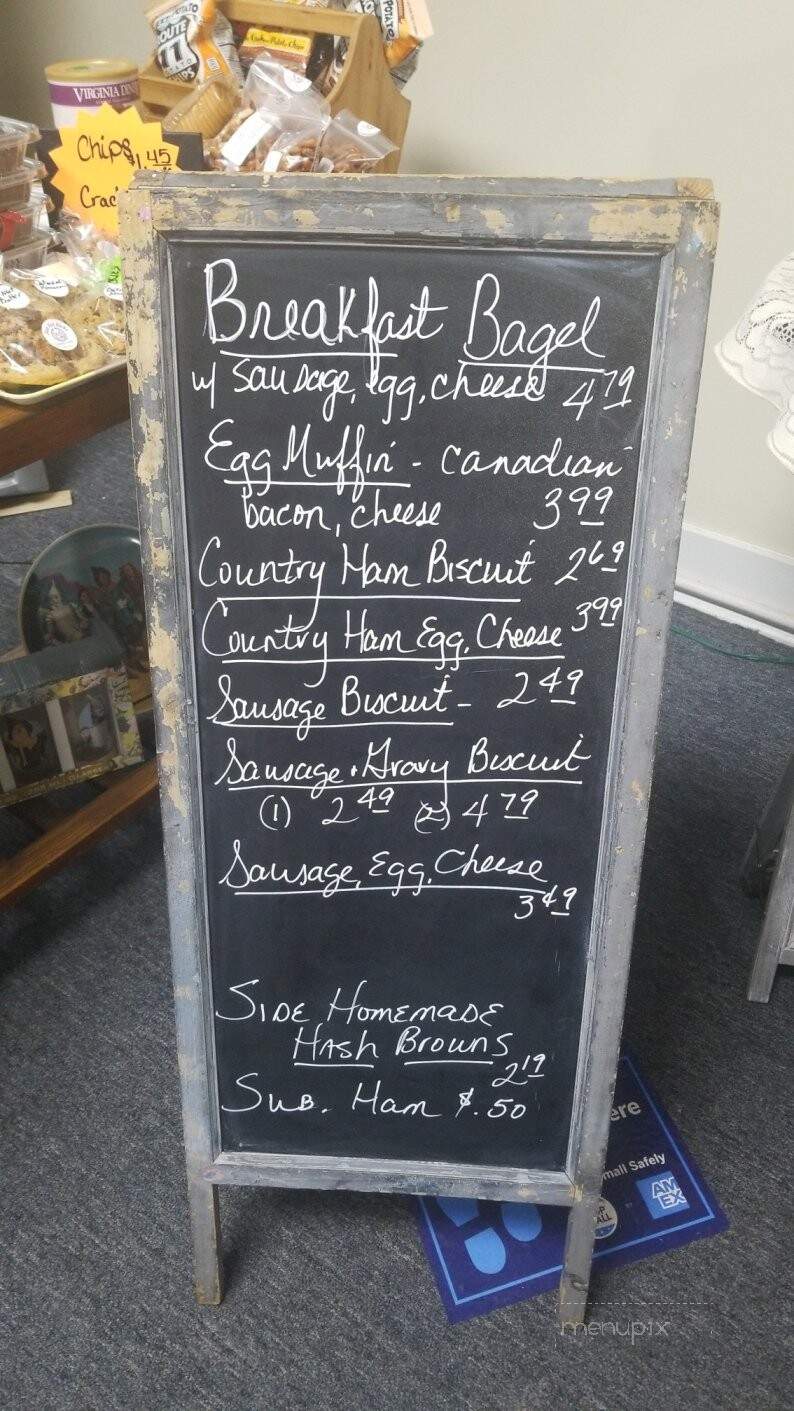 ROUTE
11
POTATO
CHIPS
VIRGINIA
Chips $1.45
Breakfast Bagel
w/ sausage, egg, cheese 4 79
Egg Muffin - canadian
bacon, cheese 3 99
Country Ham Biscuit 2 69
Country Ham Egg, Cheese 3 99
Sausage Biscuit - 2 49
Sausage + Gravy Biscuit
(1) 2 49 (2) 4 79
Sausage, Egg, Cheese
3 49
SIDE HOMEMADE
HASH BROWNS
2 19
SUB. Ham $.50
ere
mall Safely
AM
EX
menupix